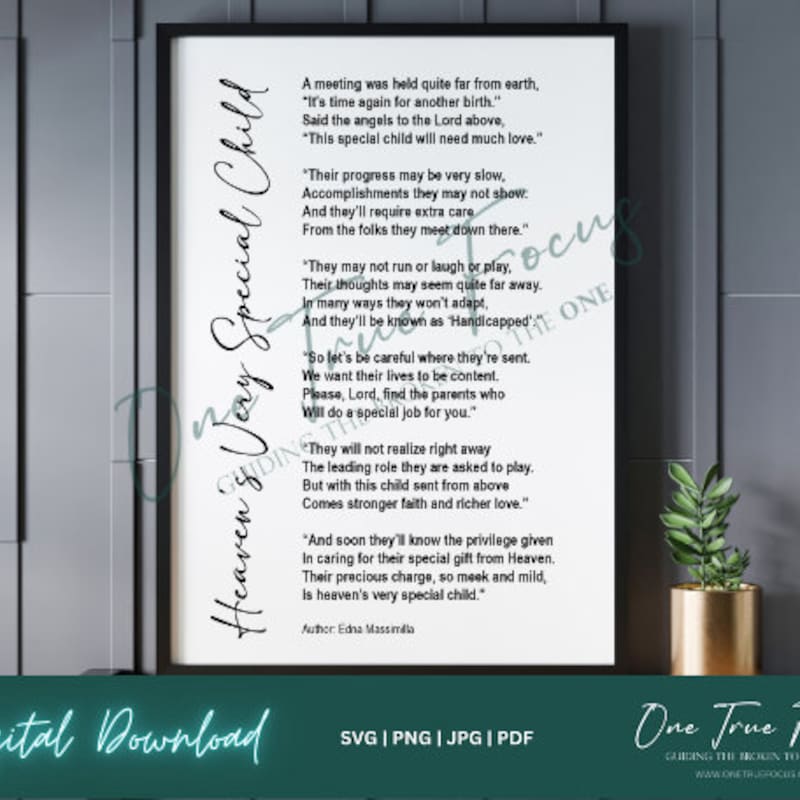 Heaven's Very Special Child
A meeting was held quite far from earth,
"It's time again for another birth."
Said the angels to the Lord above,
"This special child will need much love."
"Their progress may be very slow,
Accomplishments they may not show.
And they'll require extra care
From the folks they meet down there."
"They may not run or laugh or play,
Their thoughts may seem quite far away.
In many ways they won't adapt,
And they'll be known as 'Handicapped'."
"So let's be careful where they're sent.
We want their lives to be content.
Please, Lord, find the parents who
Will do a special job for you."
"They will not realize right away
The leading role they are asked to play.
But with this child sent from above
Comes stronger faith and richer love."
"And soon they'll know the privilege given
In caring for their special gift from Heaven.
Their precious charge, so meek and mild,
Is heaven's very special child."
Author: Edna Massimilla
One True Focus
GUIDING THE BROKEN TO THE ONE
ital Download
SVG | PNG | JPG | PDF
One True F
GUIDING THE BROKEN TO
WWW.ONETRUEFOCUS.